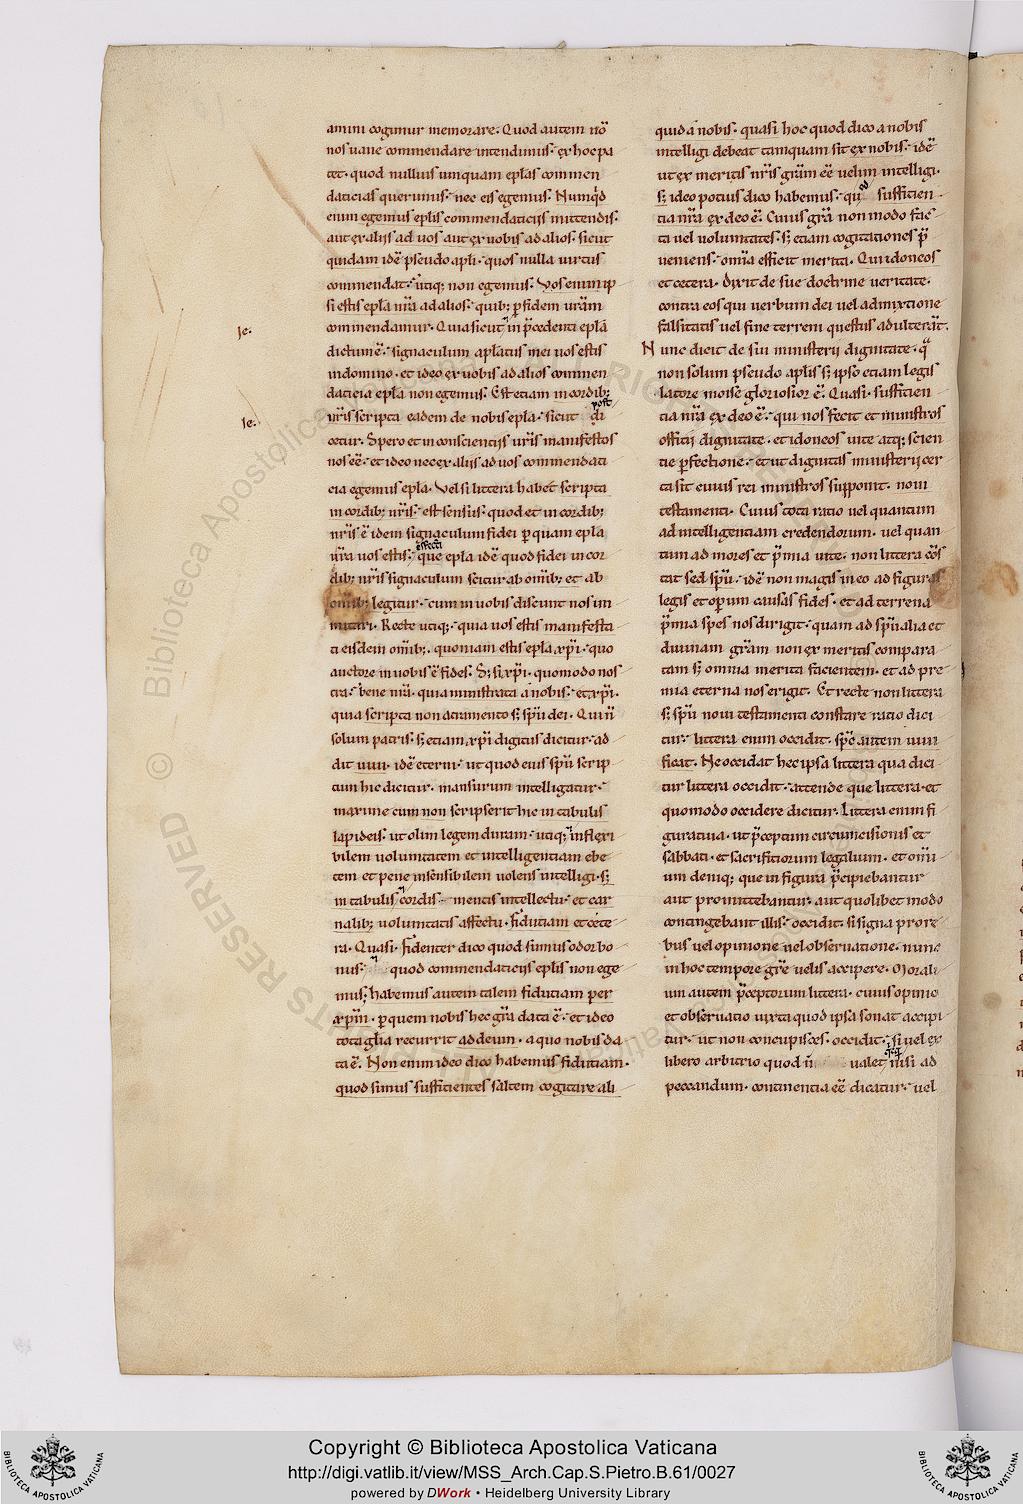 amini cogimur memorare. Quod autem nō
nos uane commendare intendimus. ex hoc pa
tet. quod nullius umquam ep̄las commen
daticias querimus. nec eis egemus. Numq̇d
enim egemus ep̄lis commendaticijs mittendis.
aut ex alijs ad uos aut ex uobis ad alios. sicut
quidam idē pseudo apl̄i. quos nulla uirtus
commendat. utiq; non egemus. Vos enim ip
si estis ep̄la nr̄a ad alios. quib; ꝑ fidem ur̄am
commendamur. Quia sicut in p̄cedenti ep̄la
Ie.
dictum ē. signaculum aplatus mei uos estis
in domino. et ideo ex uobis ad alios commen
daticia ep̄la non egemus. Est etiam in cordib;
post
ur̄is scripta eadem de nobis ep̄la. sicut di
Ie.
cetur. Spero et in conscientijs ur̄is manifestos
nos eē. et ideo nec ex alijs ad uos commendati
cia egemus ep̄la. Vel si littera habet scripta
in cordib; nr̄is. est sensus. quod et in cordib;
nr̄is ē idem signaculum fidei per quam ep̄la
effecti
nr̄a uos estis. que ep̄la idē quod fidei in cor
dib; nr̄is signaculum scitur ab om̄ib; et ab
om̄ib; legitur. cum in uobis discunt nos im
mitari. Recte utiq;. quia uos estis manifesta
ti eisdem om̄ib;. quoniam estis ep̄la xp̄i. quo
auctore in uobis ē fides. S; si xp̄i. quomodo nos
tra. bene nr̄a. quia ministrata a nobis. et xp̄i.
quia scripta non atramento s; sp̄u dei. Qui n̄
solum patris. s; etiam xp̄i digitus dicitur. ad
dit uiui. idē eterni. ut quod eius sp̄u scrip
tum hic dicitur. mansurum intelligatur.
maxime cum non scripserit hic in tabulis
lapideis. ut olim legem duram. utiq; inflexi
bilem uoluntatem et intelligentiam ebe
tem et pene insensibilem uolens intelligi. s;
in tabulis cordis. mentis intellectu. et car
nalib; uoluntatis affectu. fidutiam et cete
ra. Quasi. fidenter dico quod simus odor bo
nus. quod commendaticijs ep̄lis non ege
mus. habemus autem talem fidutiam per
xp̄m. ꝑ quem nobis hec gr̄a data ē. et ideo
tota gl̄ia recurrit ad deum. a quo nobis da
ta ē. Non enim ideo dico habemus fidutiam.
quod simus sufficientes saltem cogitare ali
quid a nobis. quasi hoc quod dico a nobis
intelligi debeat tamquam sit ex nobis. idē
ut ex meritis nr̄is gr̄am eē uelim intelligi.
s; ideo potius dico habemus. quod sufficien
tia nr̄a ex deo ē. Cuius gr̄a non modo fac
ta uel uoluntates. s; etiam cogitationes p̄
ueniens. om̄ia efficit merita. Qui idoneos
et cetera. dixit de sue doctrine ueritate.
contra eos qui uerbum dei uel admixtione
falsitatis uel fine terreni questus adulterāt.
Nunc dicit de sui ministerij dignitate. q̄
non solum pseudo aplis s; ipso etiam legis
latore moise gloriosior ē. Quasi. sufficien
tia nr̄a ex deo ē. qui nos fecit et ministros
officij dignitate. et idoneos uite atq; scien
tie ꝑfectione. et ut dignitas ministerij cer
ta sit cuius rei ministros supponit. noui
testamenti. Cuius tota ratio uel quantum
ad intelligentiam credendorum. uel quan
tum ad mores et p̄mia uite. non littera cōs
tat sed sp̄u. idē non magis in eo ad figuras
legis et operum causas fides. et ad terrena
p̄mia spes nos dirigit. quam ad sp̄ualia et
diuinam gr̄am non ex meritis compara
tam s; omnia merita facientem. et ad pre
mia eterna nos erigit. Et recte non littera
s; sp̄u noui testamenti constare ratio dici
tur. littera enim occidit. sp̄c autem uiui
ficat. Ne occidat hec ipsa littera qua dici
tur littera occidit. attende que littera et
quomodo occidere dicitur. Littera enim fi
guratiua. ut p̄ceptum circumcisionis et
sabbati. et sacrifitiorum legalium. et om̄i
um deniq; que in figura p̄cipiebantur
aut promittebantur. aut quolibet modo
contingebant illis. occidit. si signa pro re
bus uel opinione uel obseruatione. nunc
in hoc tempore gr̄e uelis accipere. Morali
um autem p̄ceptorum littera. cuius opinio
et obseruatio iuxta quod ipsa sonat accipi
tur. ut non concupisces. occidit. si uel ex
libero arbitrio quod n̄ ualet nisi ad
peccandum. continentia eē dicatur. uel
Copyright © Biblioteca Apostolica Vaticana
http://digi.vatlib.it/view/MSS_Arch.Cap.S.Pietro.B.61/0027
powered by DWork • Heidelberg University Library
BIBLIOTECA APOSTOLICA VATICANA
BIBLIOTECA APOSTOLICA VATICANA